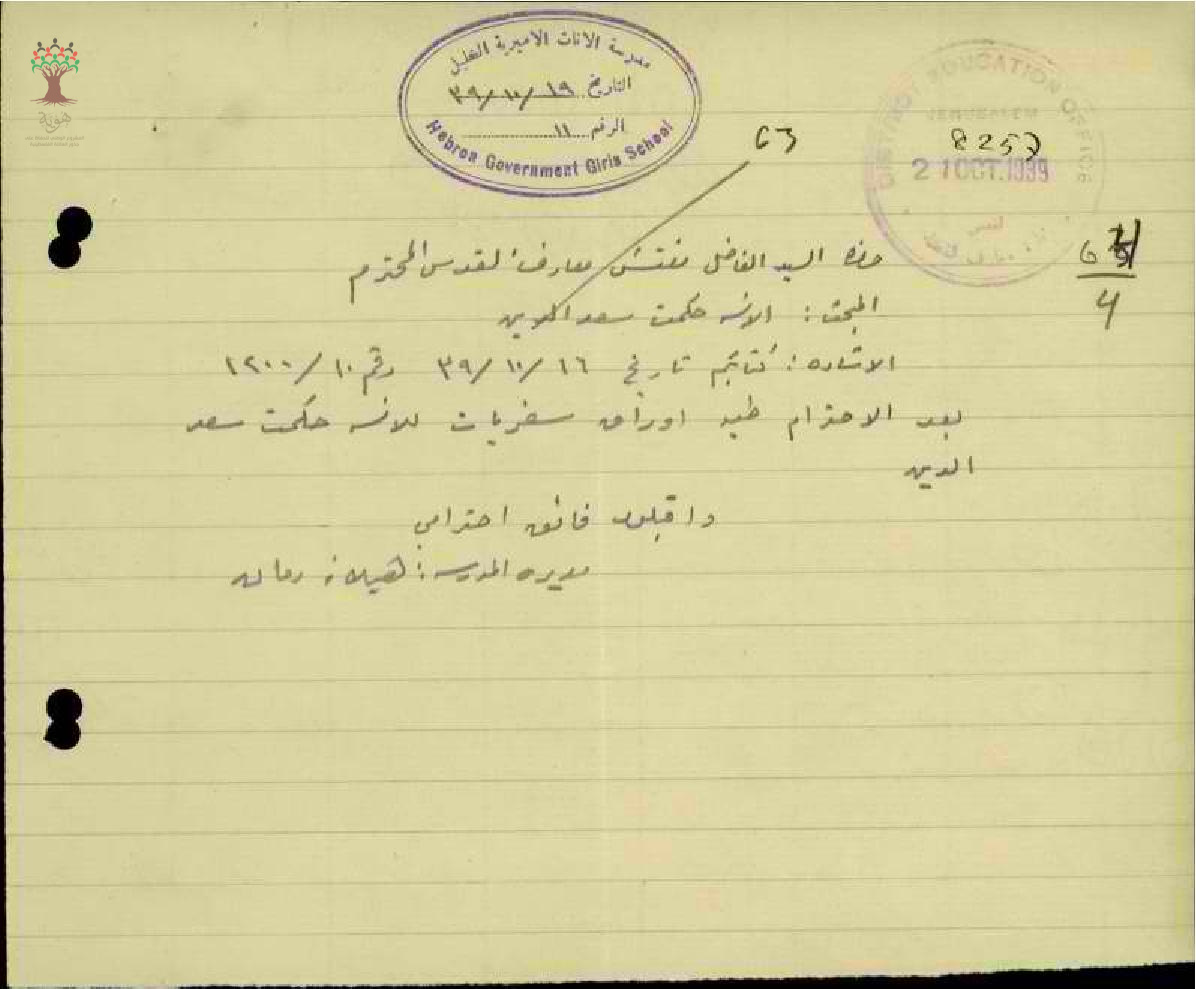 مدرسة الاناث الاميرية الخليل
التاريخ ١٩/١٠/٣٩
الرقم ١١
Hebron Government Girls School
DISTRICT EDUCATION OFFICE
JERUSALEM
8257
21 OCT. 1939
القدس
63
هوية
حضرة السيد الفاضل مفتش معارف القدس المحترم
6
4
المبحث : الانسه حكمت سعد الدين
الاشاره : كتابكم تاريخ ١٦/١٠/٣٩ رقم ١٠/١٢٠٠
بعد الاحترام طيه اوراق سفريات للانسه حكمت سعد
الدين
واقبلوا فائق احترامي
مديره المدرسه : هيلانه رمان